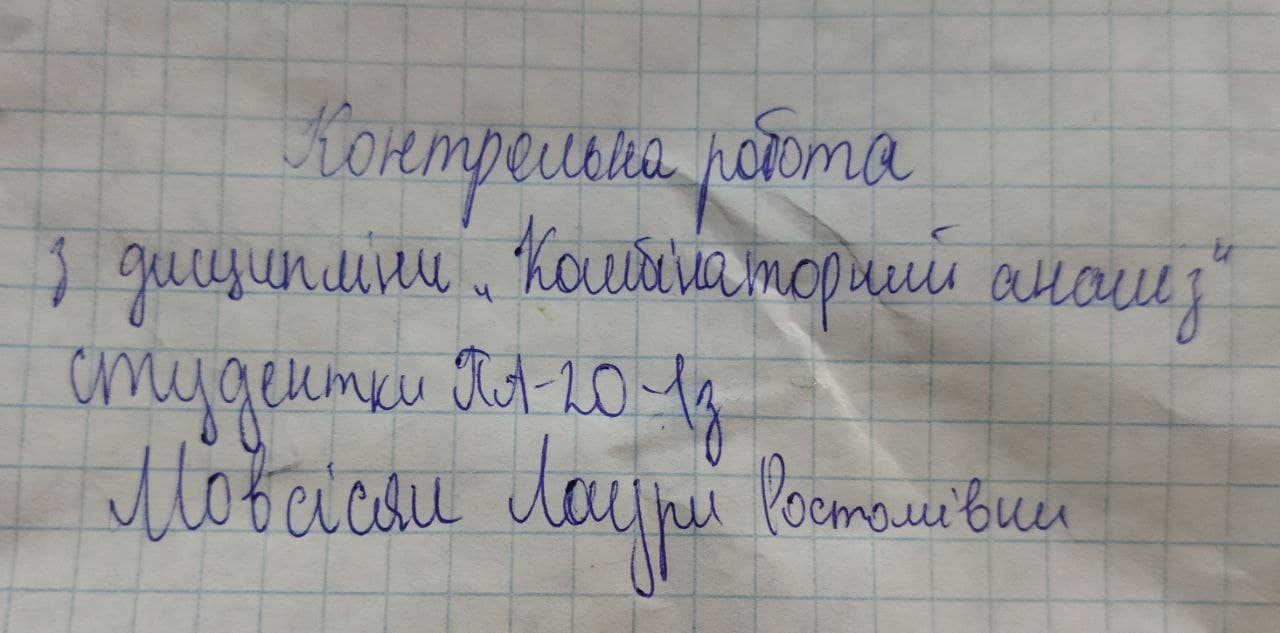 Контрольна робота
з дисципліни „Комбінаторний аналіз“
студентки ПА-20-1з
Мовсісян Лаури Ростомівни